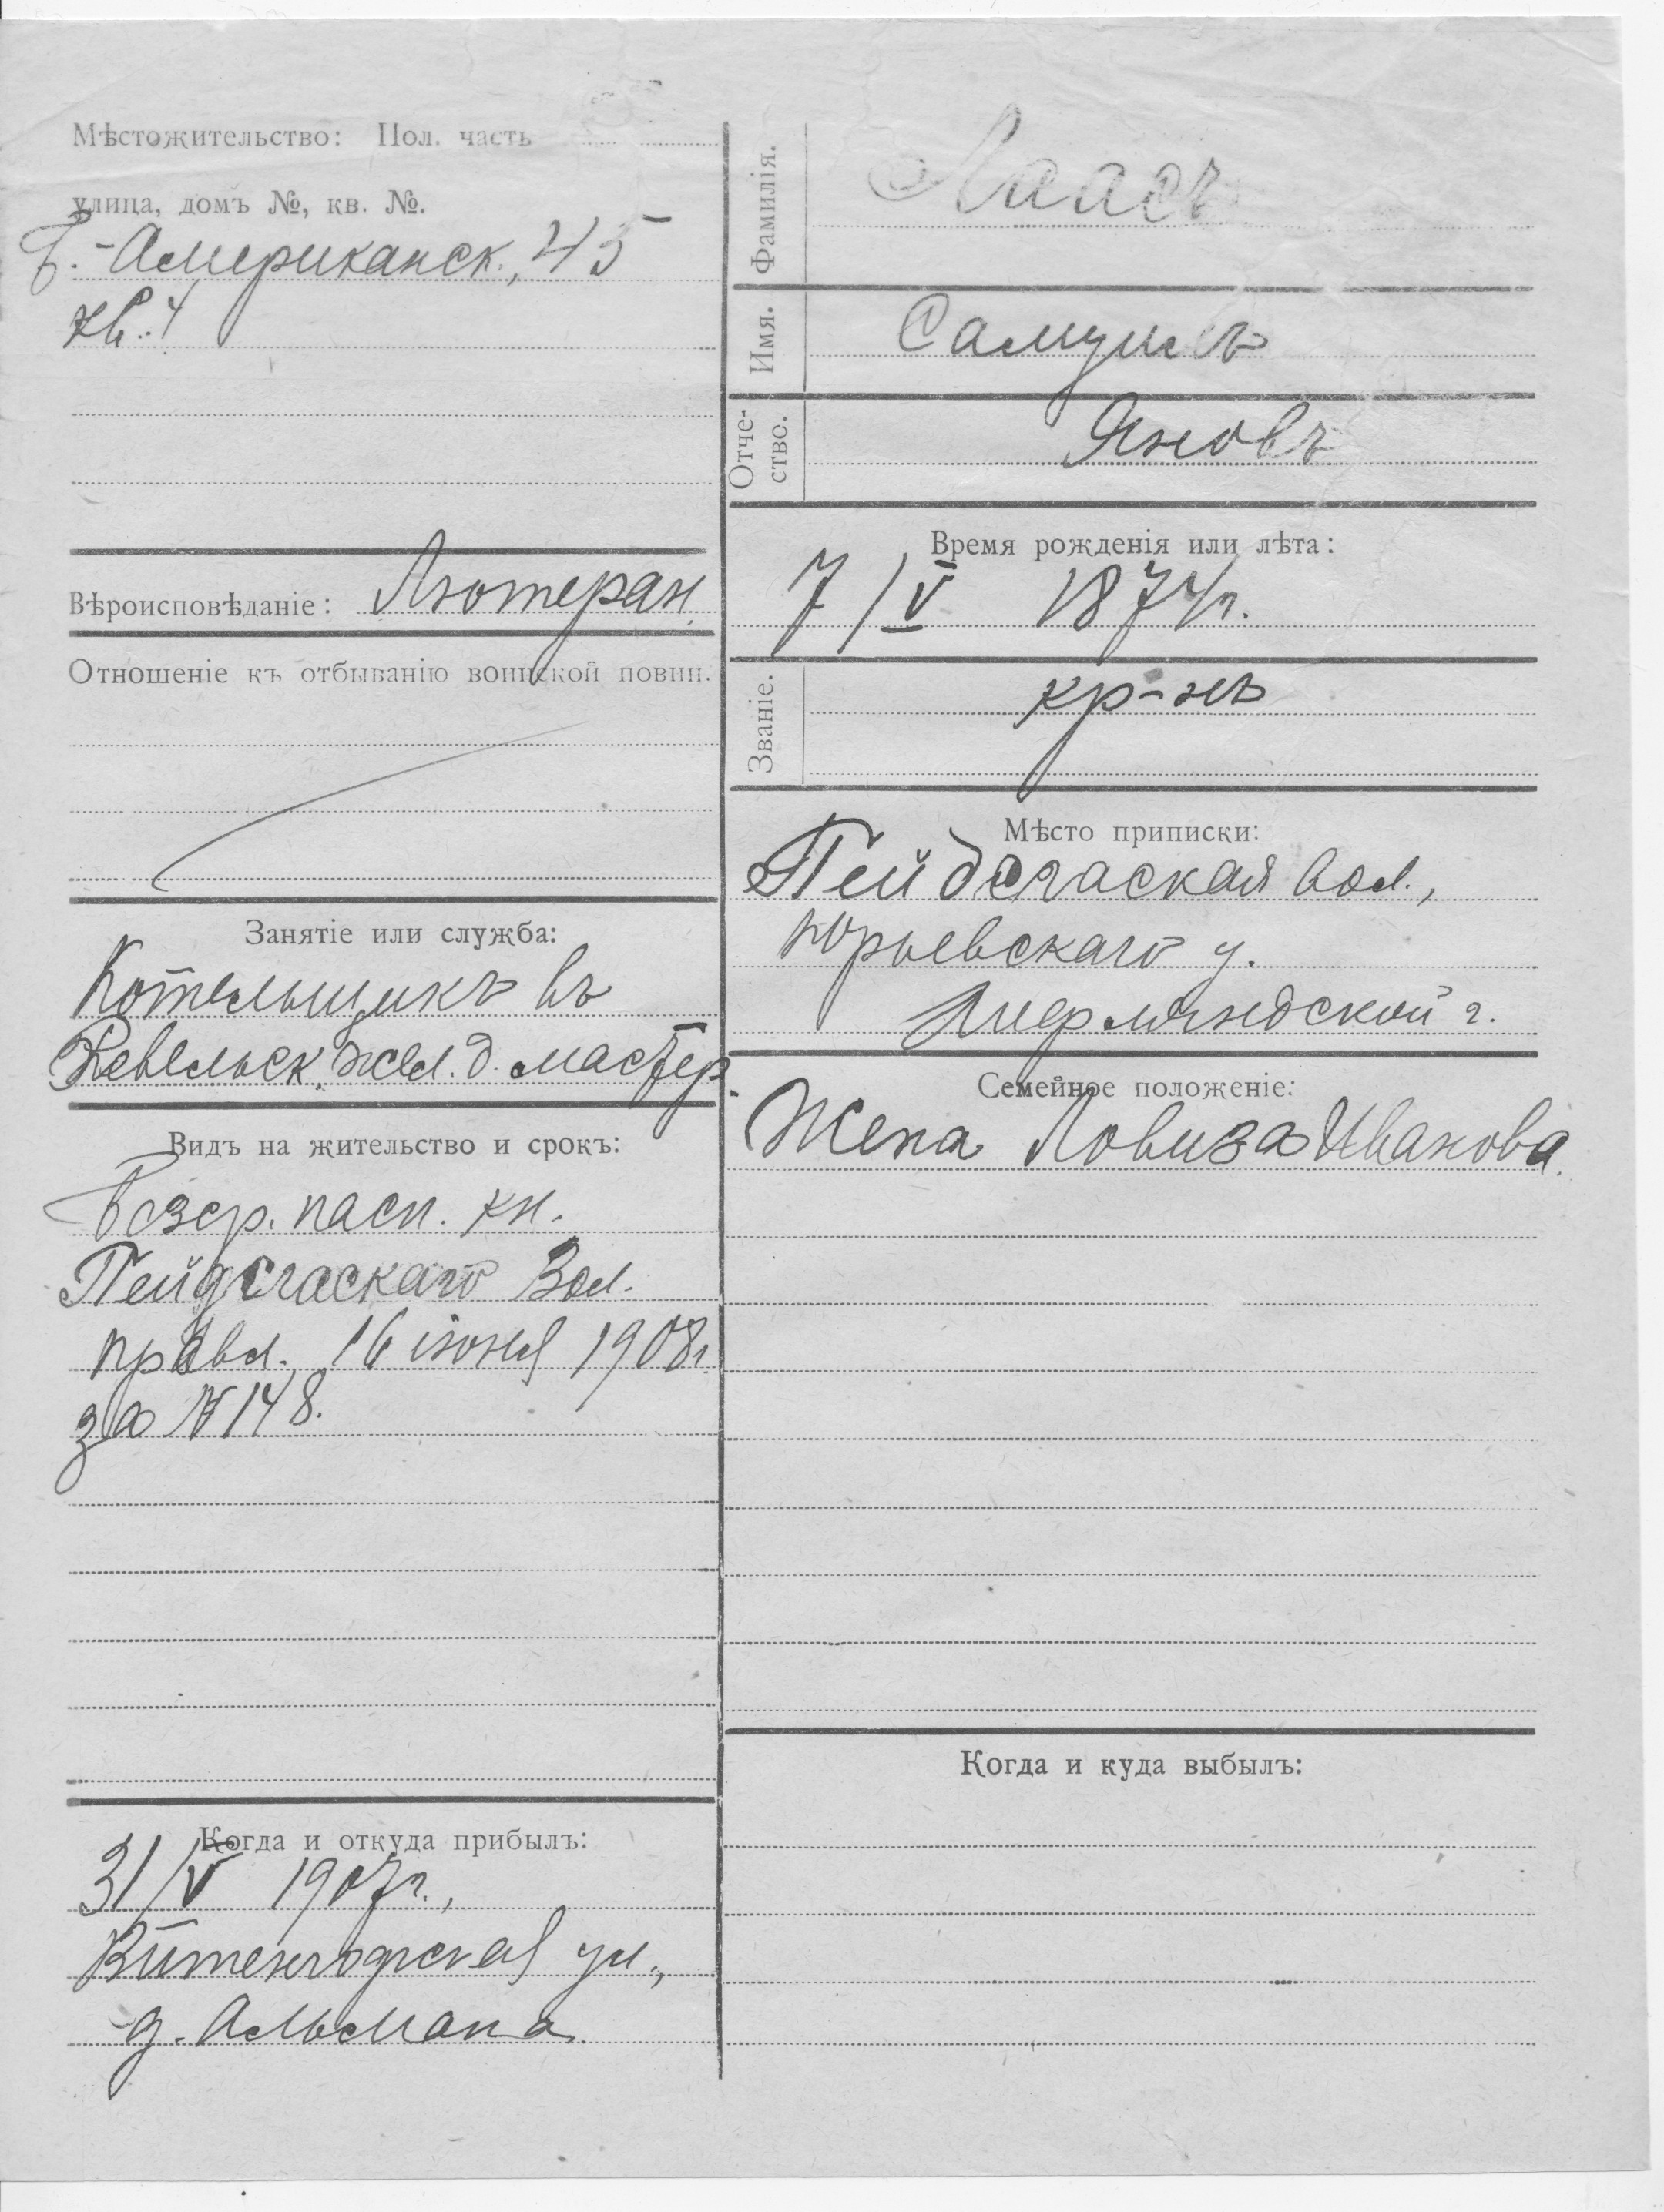 Мѣстожительство: Пол. часть
улица, домъ №, кв. №.
Б.-Американск., 45
кв. 4
Вѣроисповѣданіе: Лютеран.
Отношеніе къ отбыванію воинской повин.
Занятіе или служба:
Котельщикъ въ
Ревельск. жел. д. мастер.
Видъ на жительство и срокъ:
Безср. пасп. кн.
Вол.
правл. 16 іюня 1908 г.
за № 148.
Когда и откуда прибылъ:
31/V 1907 г.,
ул.,
д. Альмана
Фамилія. Лаасъ
Имя. Самуилъ
Отче-
ство. Яновъ
Время рожденія или лѣта:
7/V 1874 г.
Званіе. кр-нъ
Мѣсто приписки:
вол.,
Юрьевскаго у.
Лифляндской г.
Семейное положеніе:
Жена Ловиза Иванова.
Когда и куда выбылъ: